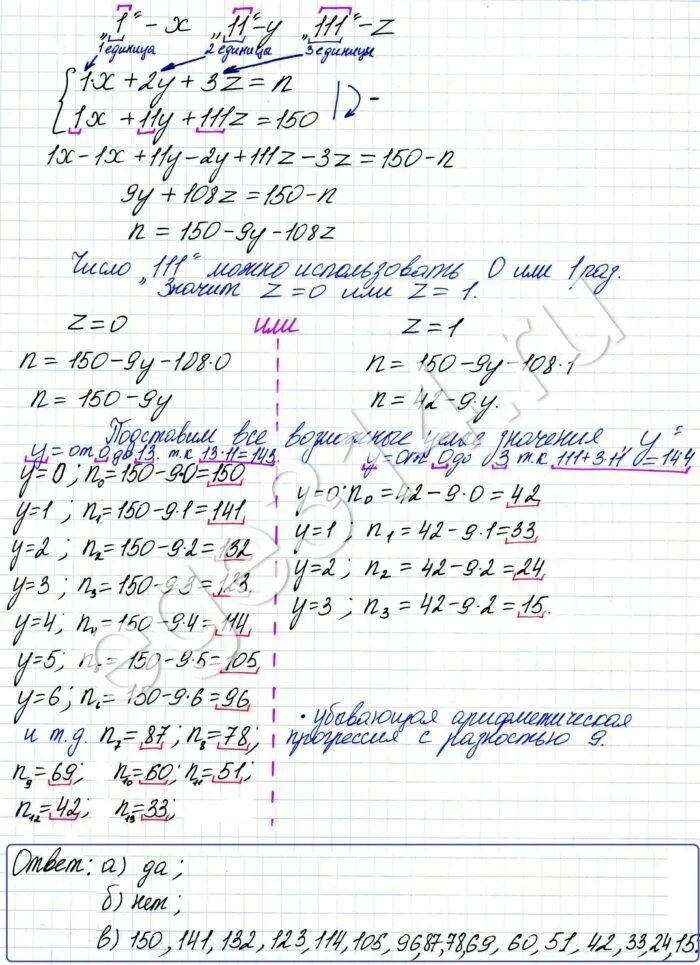 „1“ - x „11“ - y „111“ - z
1 единица 2 единица 3 единицы
1·x + 2y + 3z = n
1x + 11y + 111z = 150
1x - 1x + 11y - 2y + 111z - 3z = 150 - n
9y + 108z = 150 - n
n = 150 - 9y - 108z
Число „111“ можно использовать 0 или 1 раз.
Значит z = 0 или z = 1.
z = 0 или z = 1
n = 150 - 9y - 108·0
n = 150 - 9y
n = 150 - 9y - 108·1
n = 42 - 9·y.
Подставим все возможные целые значения „y“
y = от 0 до 13. т.к 13·11 = 143.
y = 0; n₀ = 150 - 9·0 = 150
y = 1; n₁ = 150 - 9·1 = 141
y = 2; n₂ = 150 - 9·2 = 132
y = 3; n₃ = 150 - 9·3 = 123
y = 4; n₄ = 150 - 9·4 = 114
y = 5; n₅ = 150 - 9·5 = 105
y = 6; n₆ = 150 - 9·6 = 96
и т.д. n₇ = 87; n₈ = 78;
n₉ = 69; n₁₀ = 60; n₁₁ = 51;
n₁₂ = 42; n₁₃ = 33;
y = от 0 до 3 т.к 111 + 3·11 = 144
y = 0; n₀ = 42 - 9·0 = 42
y = 1; n₁ = 42 - 9·1 = 33
y = 2; n₂ = 42 - 9·2 = 24
y = 3; n₃ = 42 - 9·2 = 15.
· убывающая арифметическая
прогрессия с разностью 9.
Ответ: а) да;
б) нет;
в) 150, 141, 132, 123, 114, 105, 96, 87, 78, 69, 60, 51, 42, 33, 24, 15
ege314.ru